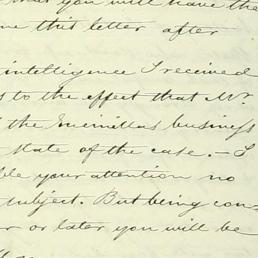 that you will have the
me this letter after
intelligence I received
s to the effect that Mr.
the business
state of the case. - I
ble your attention no
subject. But being con-
r or later you will be